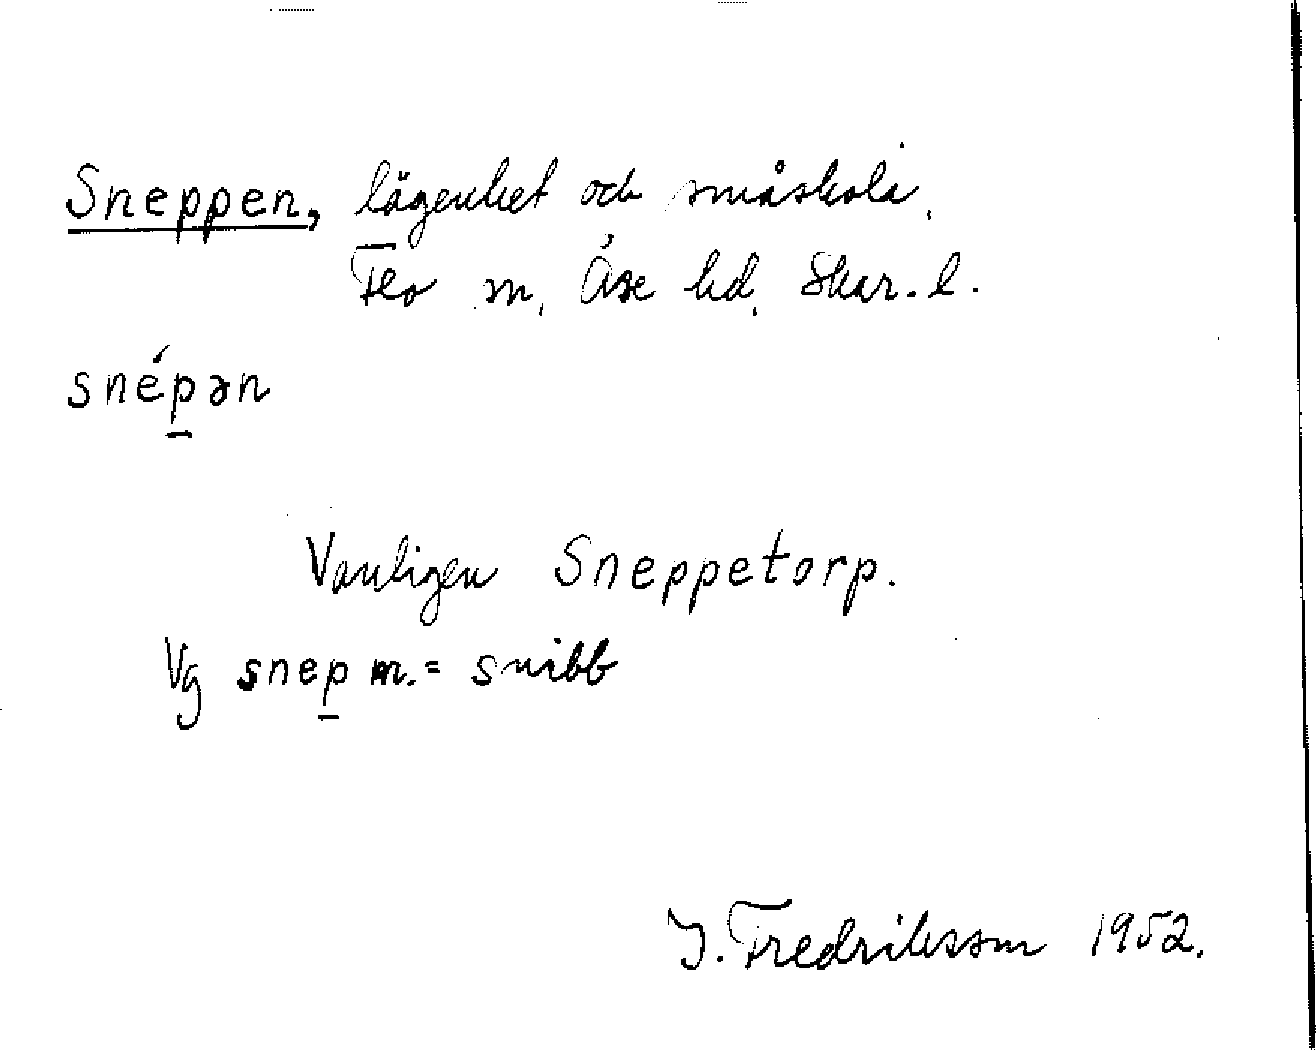 Sneppen, lägenhet och småskola,
Flo sn, Åse hd, Skar. l.
snépən
Vanligen Sneppetorp.
Vg snep m. = snibb
I. Fredriksson 1952.